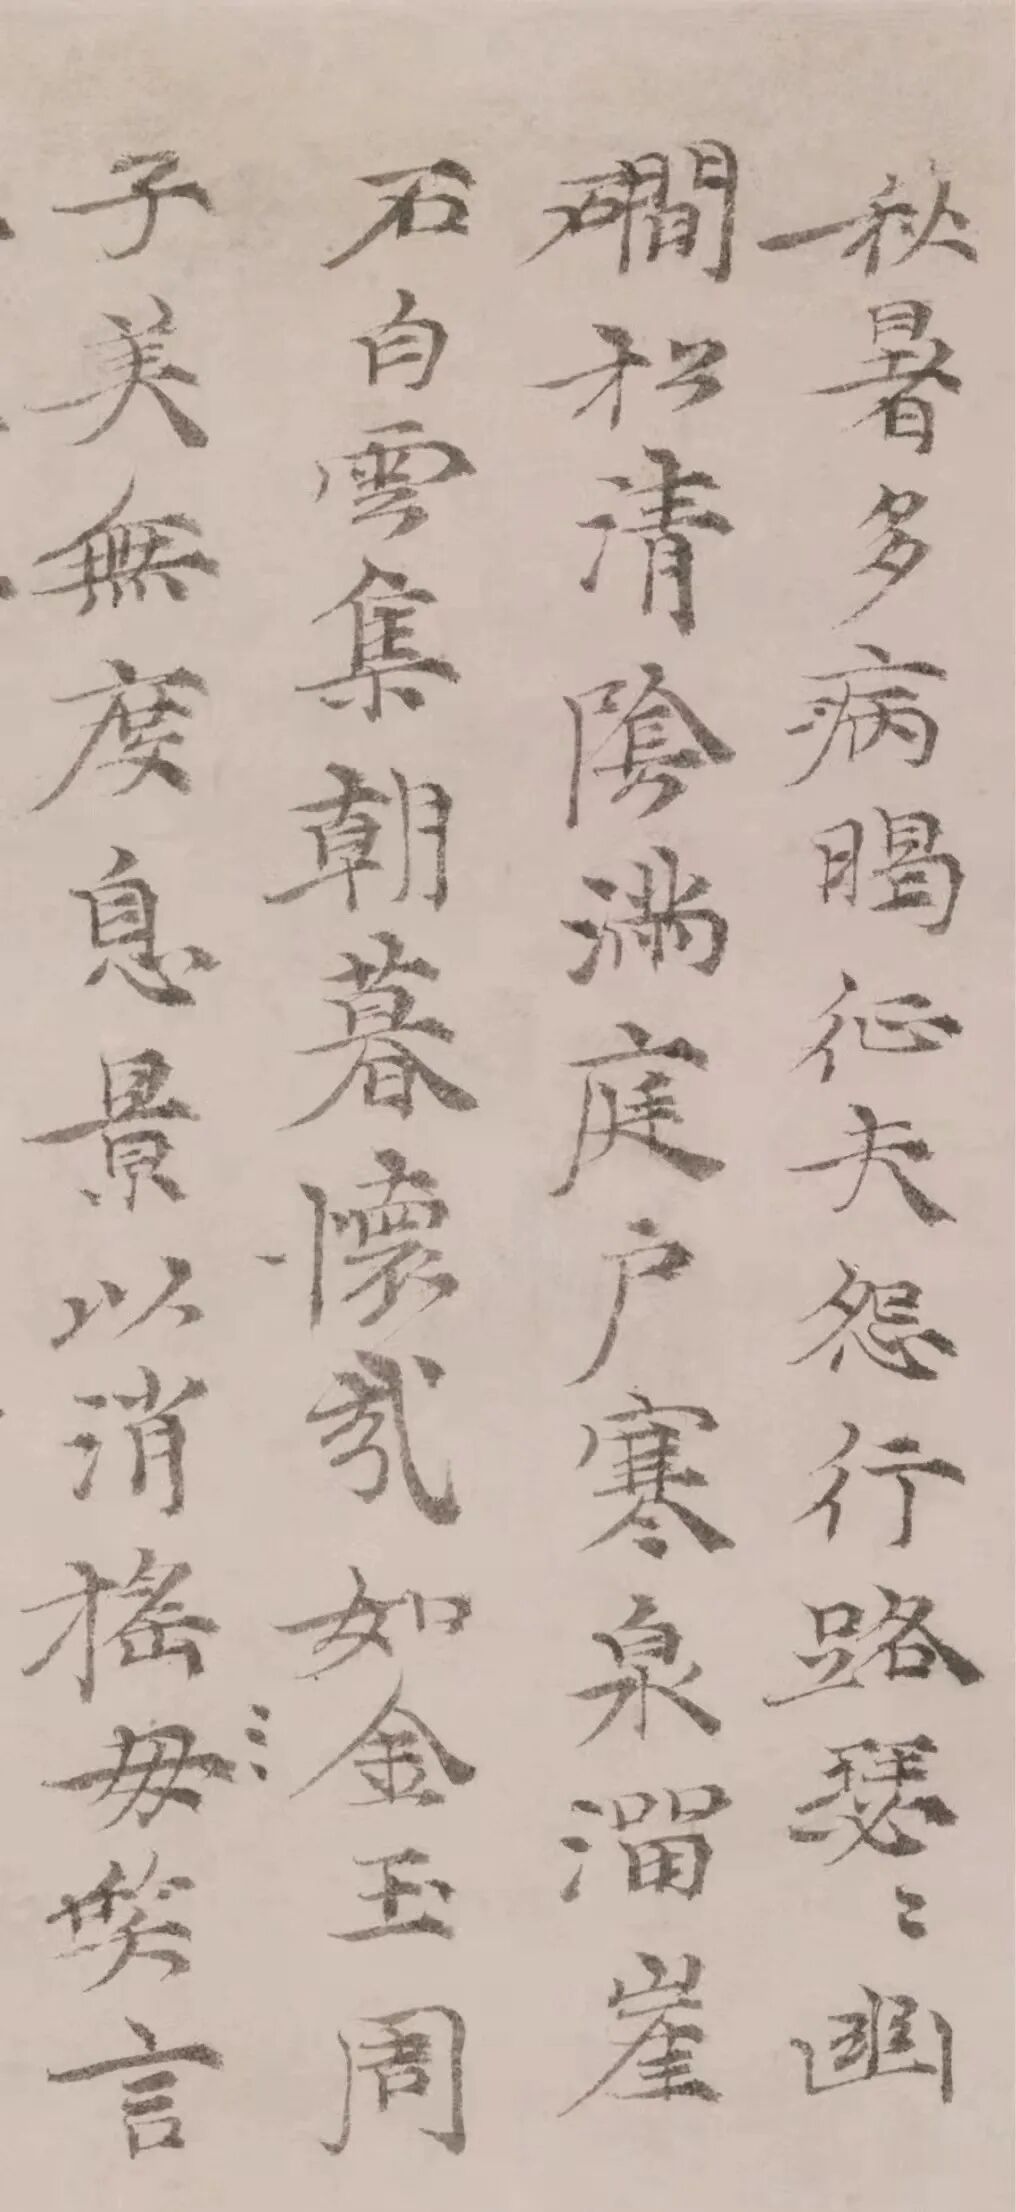 秋暑多病暍征夫怨行路瑟〻幽
磵松清陰滿庭户寒泉溜崖
石白雲集朝暮懷哉如金玉周
子美無度息景以消搖毋笑言